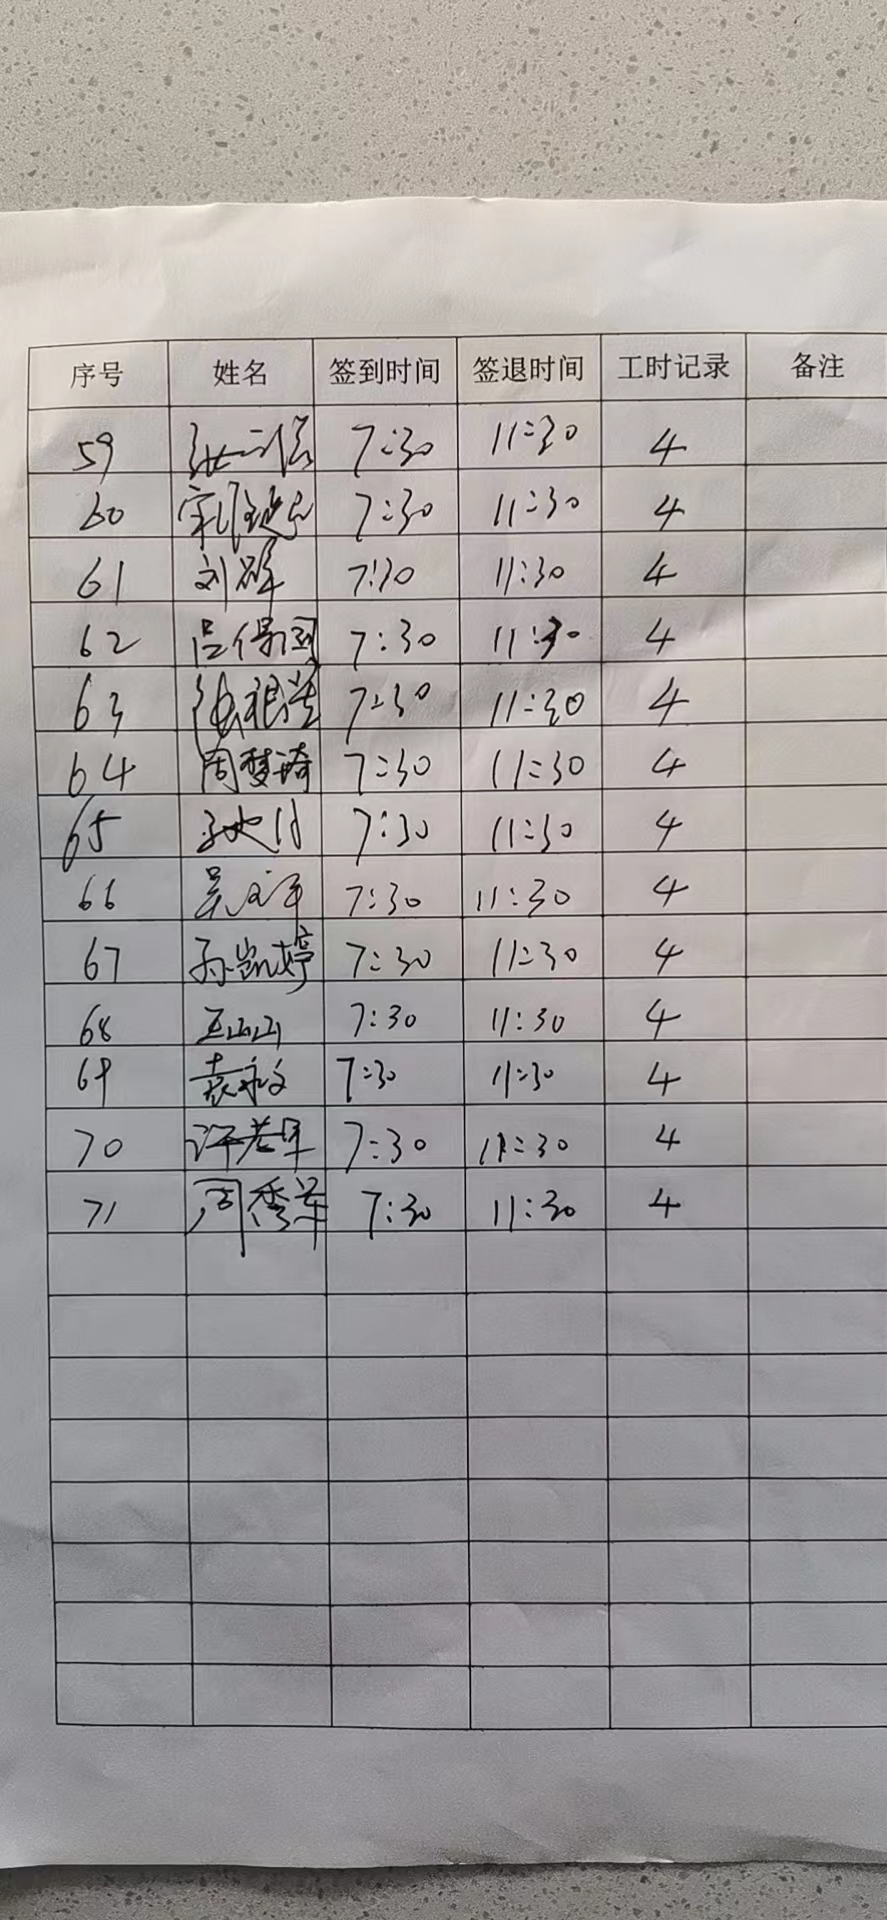 序号 姓名 签到时间 签退时间 工时记录 备注
59 7:30 11:30 4
60 7:30 11:30 4
61 刘 7:30 11:30 4
62 吕保国 7:30 11:30 4
63 7:30 11:30 4
64 周梦琦 7:30 11:30 4
65 7:30 11:30 4
66 吴文军 7:30 11:30 4
67 孙凯婷 7:30 11:30 4
68 王山山 7:30 11:30 4
69 袁永文 7:30 11:30 4
70 许 7:30 11:30 4
71 周秀 7:30 11:30 4